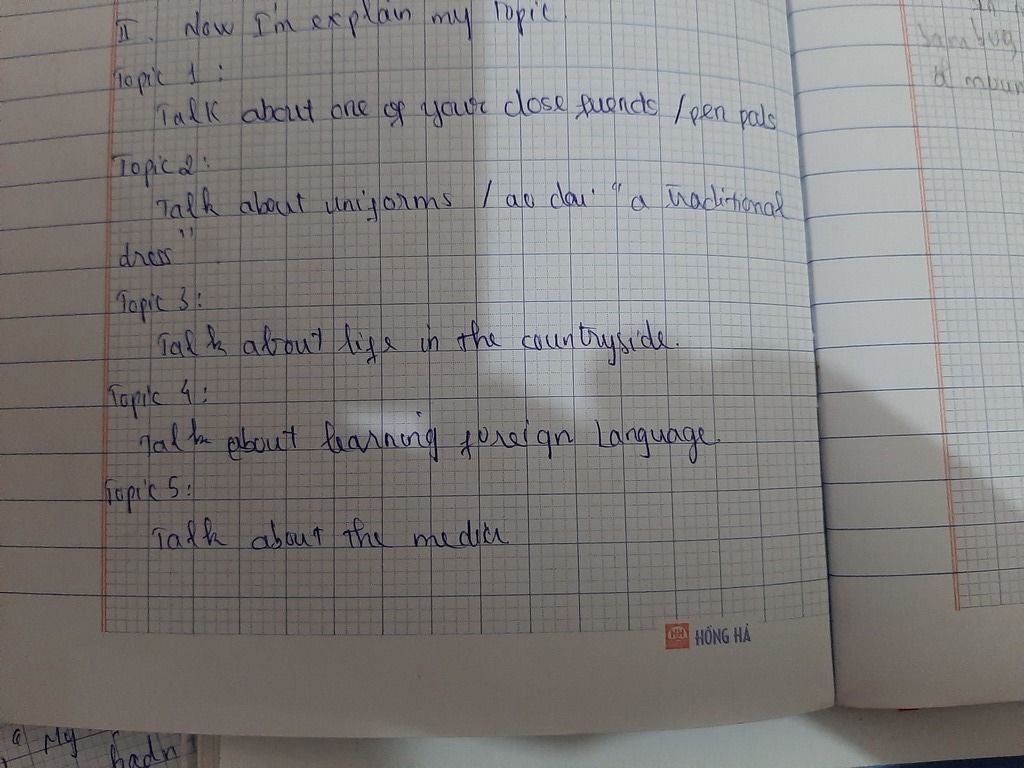 II. Now I'm explain my Topic
Topic 1:
Talk about one of your close friends / pen pals
Topic 2:
Talk about uniforms / ao dai "a traditional
dress"
Topic 3:
Talk about life in the countryside.
Topic 4:
Talk about learning foreign Language.
Topic 5:
Talk about the media
HH HỒNG HÀ
My
hadn